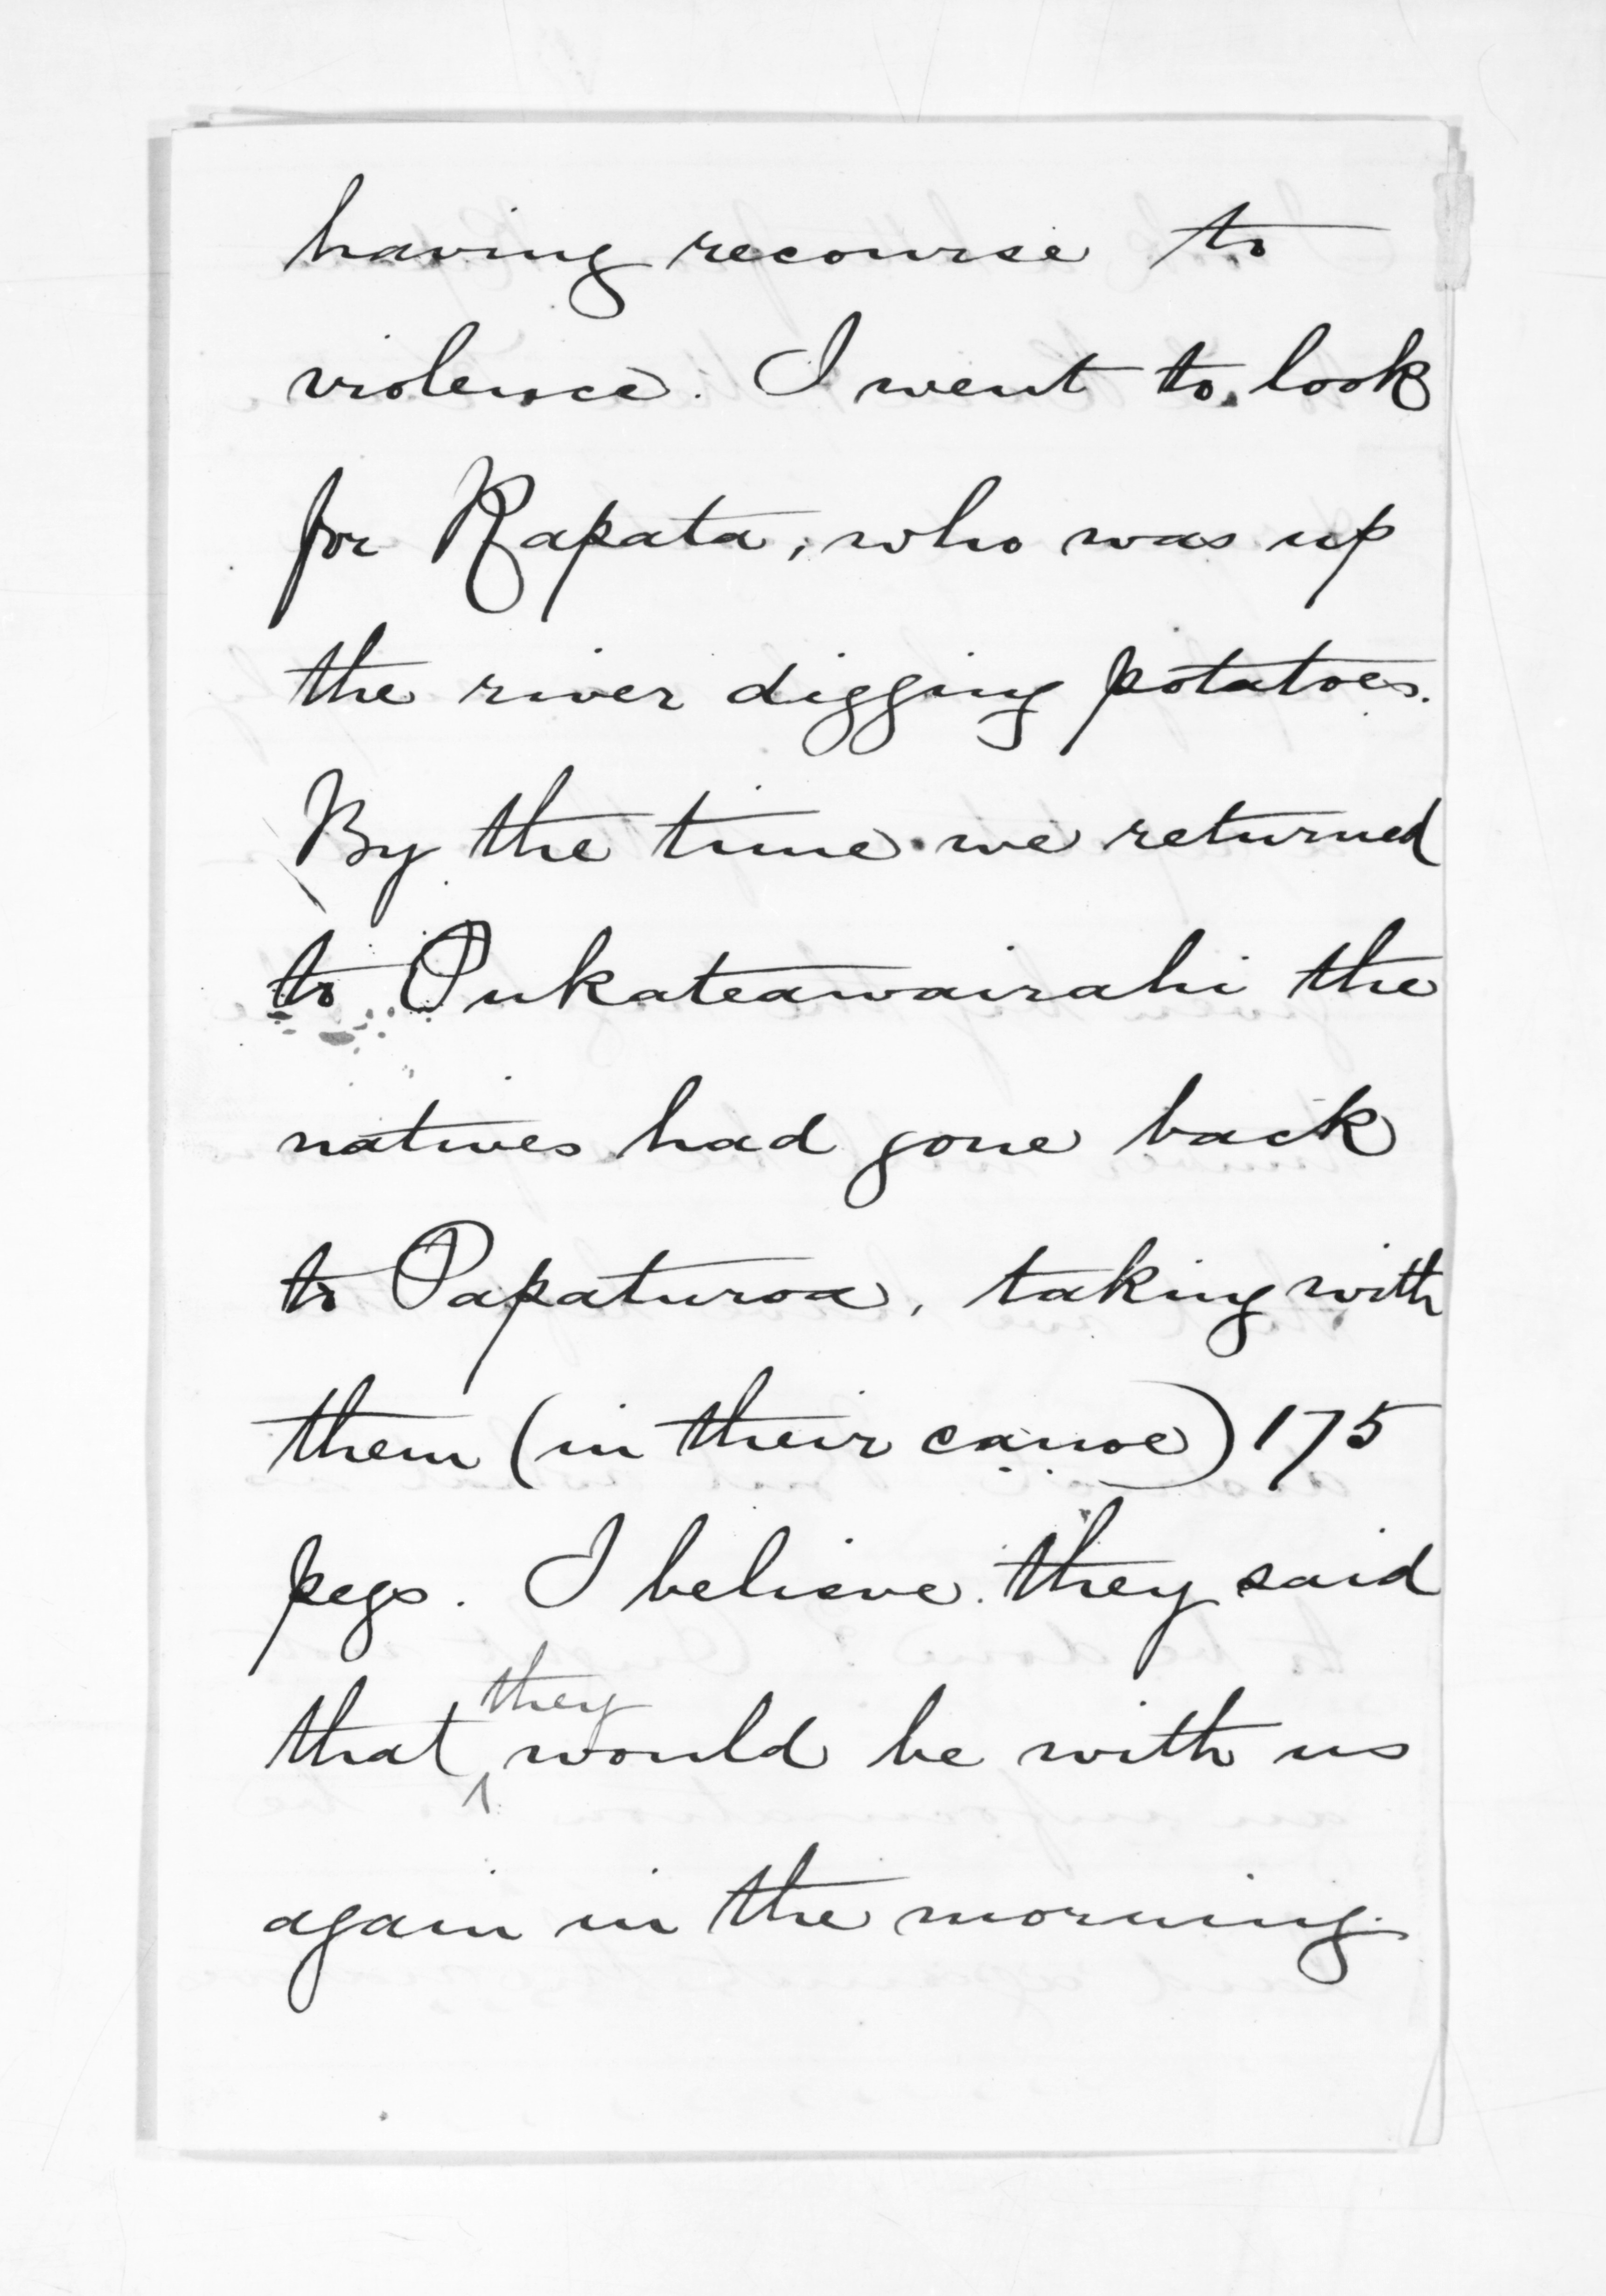 having recourse to
violence. I went to look
for Rapata, who was up
the river digging potatoes.
By the time we returned
to Pukateawairahi the
natives had gone back
to Papaturoa, taking with
them (in their canoe) 175
pegs. I believe they said
they
that would be with us
again in the morning.